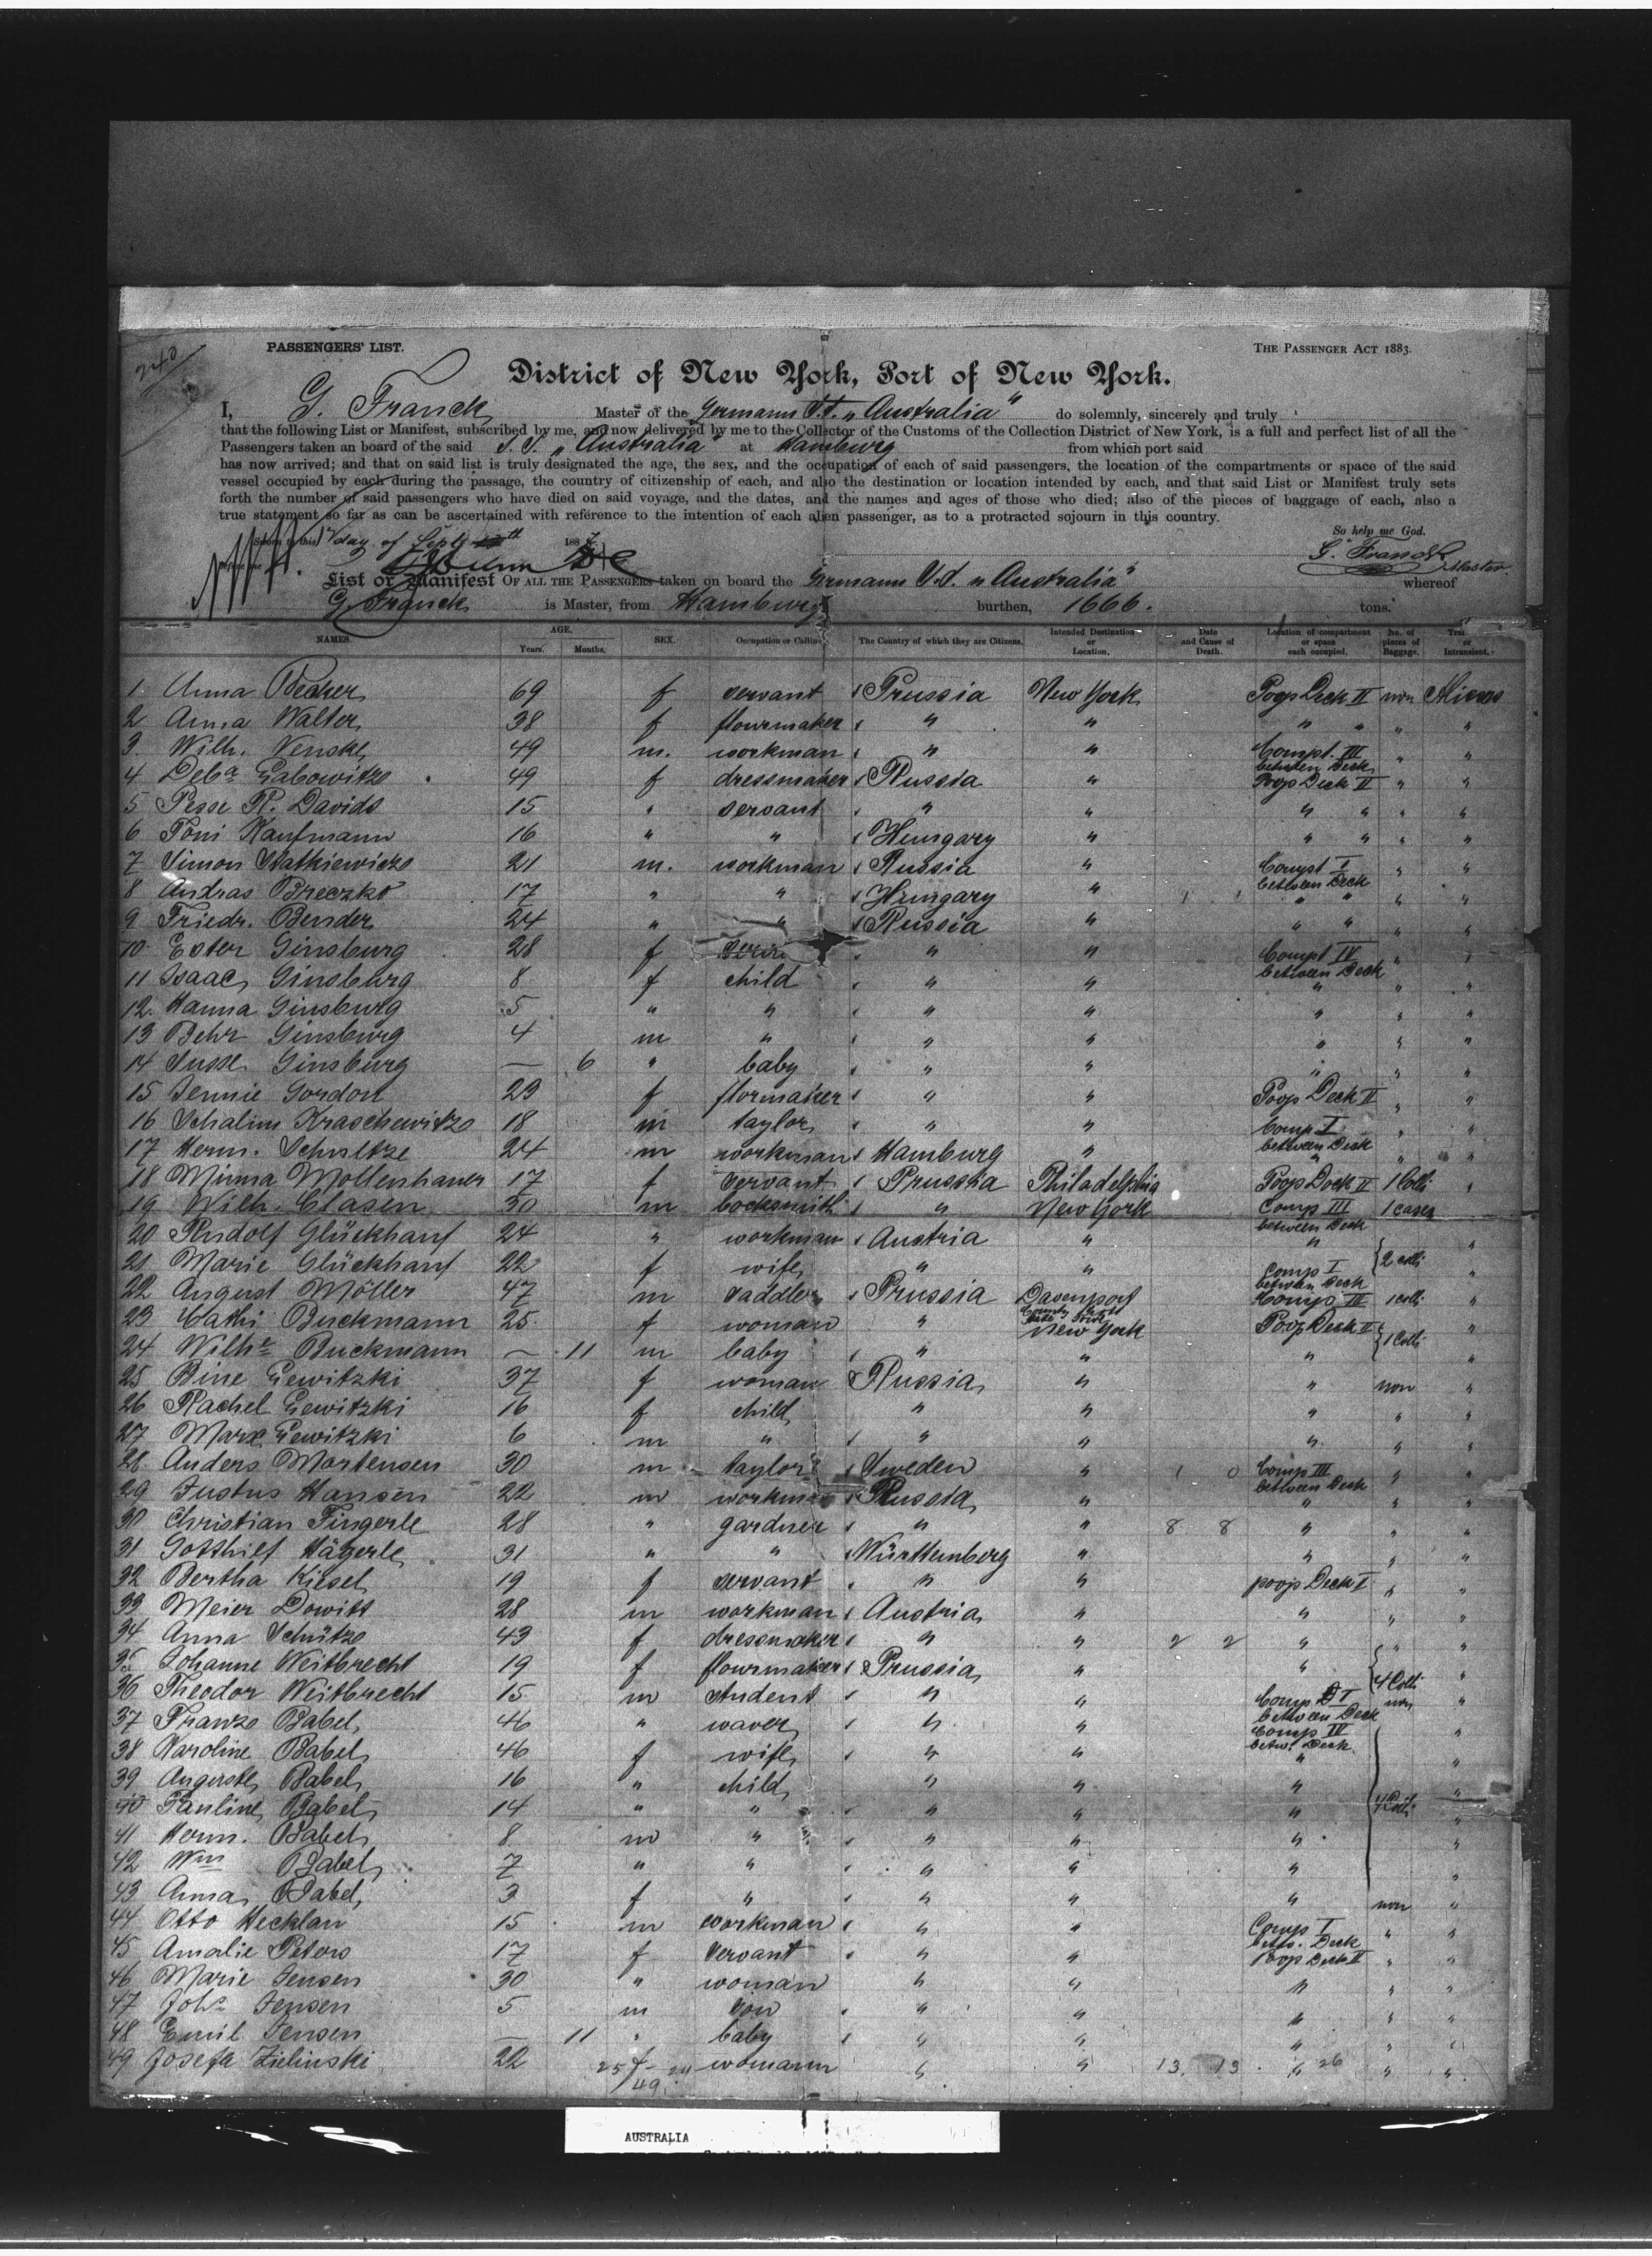 240
PASSENGERS' LIST. THE PASSENGER ACT 1883.
District of New York, Port of New York.
I, G. Franck Master of the Germann S.S. „Australia" do solemnly, sincerely and truly
that the following List or Manifest, subscribed by me, and now delivered by me to the Collector of the Customs of the Collection District of New York, is a full and perfect list of all the
Passengers taken an board of the said S.S. „Australia" at Hamburg from which port said
has now arrived; and that on said list is truly designated the age, the sex, and the occupation of each of said passengers, the location of the compartments or space of the said
vessel occupied by each during the passage, the country of citizenship of each, and also the destination or location intended by each, and that said List or Manifest truly sets
forth the number of said passengers who have died on said voyage, and the dates, and the names and ages of those who died; also of the pieces of baggage of each, also a
true statement so far as can be ascertained with reference to the intention of each alien passenger, as to a protracted sojourn in this country.
So help me God.
Sworn to this day of Sept 188
before me G. Franck Master
List or Manifest OF ALL THE PASSENGERS taken on board the Germann S.S. „Australia" whereof
G. Franck is Master, from Hamburg burthen, 1666. tons.
NAMES. AGE. Years. Months. SEX. Occupation or Calling The Country of which they are Citizens. Intended Destination or Location. Date and Cause of Death. Location of compartment or space each occupied. No. of pieces of Baggage. or Intransient.
1 Anna Becker 69 f servant Prussia New York Poop Deck II non
2 Anna Walter 38 f flowrmaker " " " " " "
3. Wilh. Venske 49 m. workman " " Compt. III between Deck " "
4 Deba Gabowitz 49 f dressmaker Russia " Poop Deck II " "
5 Pesse R. Davids 15 " servant " " " " " "
6 Toni Kaufmann 16 " " Hungary " " " " "
7 Simon Statkiewicze 21 m. workman Russia " Compt I between Deck " "
8 Andras Breczko 17 " " Hungary " " " " "
9 Friedr. Bender 24 " " Russia " " " " "
10 Ester Ginsburg 28 f " " Compt IV between Deck " "
11 Isaac Ginsburg 8 f child " " " " "
12. Hanna Ginsburg 5 " " " " " " "
13 Behr Ginsburg 4 m " " " " " "
14 Susse Ginsburg — 6 " baby " " " " "
15 Jennie Gordon 23 f flormaker " " Poop Deck II " "
16 Schalim Kraschewitz 18 m taylor " " Comp I between Deck " "
17 Herm. Schultze 24 m workman Hamburg " " " "
18 Minna Mollenhauer 17 f servant Prussia Philadelphia Poop Deck II 1 Colli "
19 Wilh. Clasen 30 m locksmith " New York Comp III between Deck 1 cases
20 Rudolf Glückhauf 24 " workman Austria " " 2 colli "
21 Marie Glückhauf 22 f wife " " Comp I between Deck "
22 August Möller 47 m saddler Prussia Davenport County Scott Comp III 1 colli "
23 Cathi Buckmann 25 f woman " New York Poop Deck II 1 Colli "
24 Wilhe Buckmann — 11 m baby " " " "
25 Bine Gewitzki 37 f woman Russia " " non "
26 Rachel Gewitzki 16 f child " " " " "
27 Marx Gewitzki 6 m " " " " " "
28 Anders Mortensen 30 m taylor Sweden " 1 0 Comp III between Deck " "
29 Justus Hansen 22 m workman Prussia " " " "
30 Christian Fingerle 28 " gardner " " 8 8 " " "
31 Gotthilf Hägerle 31 " " Württemberg " " " "
32 Bertha Kiesel 19 f servant " " poop Deck I " "
33 Meier Dowitt 28 m workman Austria " " " "
34 Anna Schütze 43 f dressmaker " " 2 2 " " "
35 Johanne Weitbrecht 19 f flowrmaker Prussia " " 4 Colli "
36 Theodor Weitbrecht 15 m student " " Comp I between Deck non "
37 Franze Babel 46 " waver " " Comp IV betw. Deck "
38 Karoline Babel 46 f wife " " " "
39 Auguste Babel 16 " child " " " "
40 Pauline Babel 14 " " " " " 4 Colli "
41 Herm. Babel 8 m " " " " "
42 Wm Babel 7 " " " " " "
43 Anna Babel 3 f " " " " non "
44 Otto Hecklau 15 m workman " " Comp I betw. Deck " "
45 Amalie Peters 17 f servant " " Poop Deck II " "
46 Marie Jensen 30 " woman " " " " "
47 Johs Jensen 5 m son " " " " "
48 Emil Jensen — 11 " baby " " " " "
49 Josefa Zielinski 22 f womann " " 13. 13 " 26 " "
25 24
49
AUSTRALIA